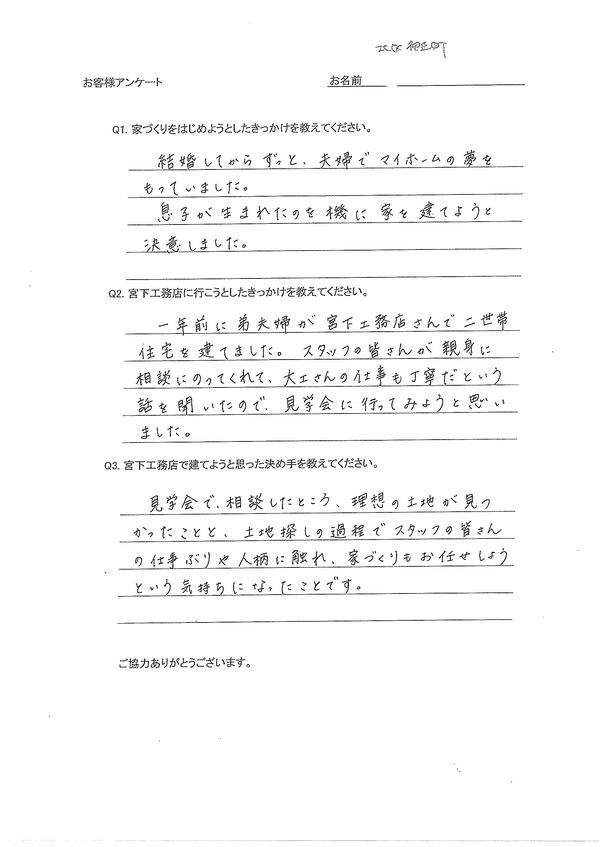 お客様アンケート
お名前
Q1. 家づくりをはじめようとしたきっかけを教えてください。
結婚してからずっと、夫婦でマイホームの夢を
もっていました。
息子が生まれたのを機に家を建てようと
決意しました。
Q2. 宮下工務店に行こうとしたきっかけを教えてください。
一年前に弟夫婦が宮下工務店さんで二世帯
住宅を建てました。スタッフの皆さんが親身に
相談にのってくれて、大工さんの仕事も丁寧だという
話を聞いたので、見学会に行ってみようと思い
ました。
Q3. 宮下工務店で建てようと思った決め手を教えてください。
見学会で、相談したところ、理想の土地が見つ
かったことと、土地探しの過程でスタッフの皆さん
の仕事ぶりや人柄に触れ、家づくりもお任せしよう
という気持ちになったことです。
ご協力ありがとうございます。